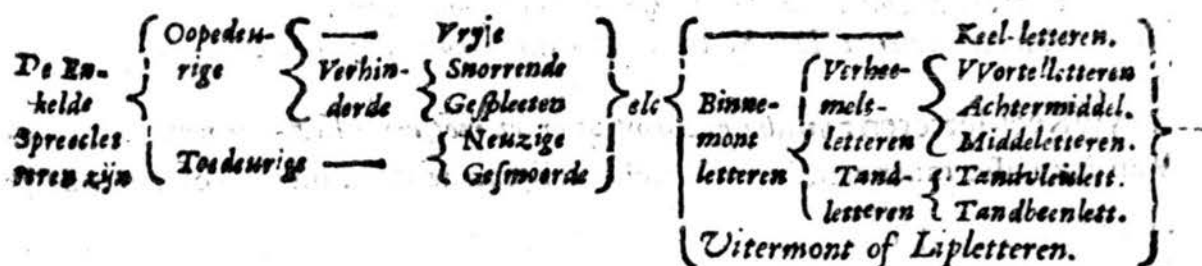 De En-
kelde
Spreeclet
teren zijn
Oopedeu-
rige
Toedeurige
Verhin-
derde
Vryje
Snorrende
Gespleeten
Neuzige
Gesmoorde
elc
Binne-
mont
letteren
Verhee-
mels-
letteren
Tand-
letteren
Keel-letteren.
VVortelletteren
Achtermiddel.
Middeletteren.
Tandvleislett.
Tandbeenlett.
Uitermont of Lipletteren.